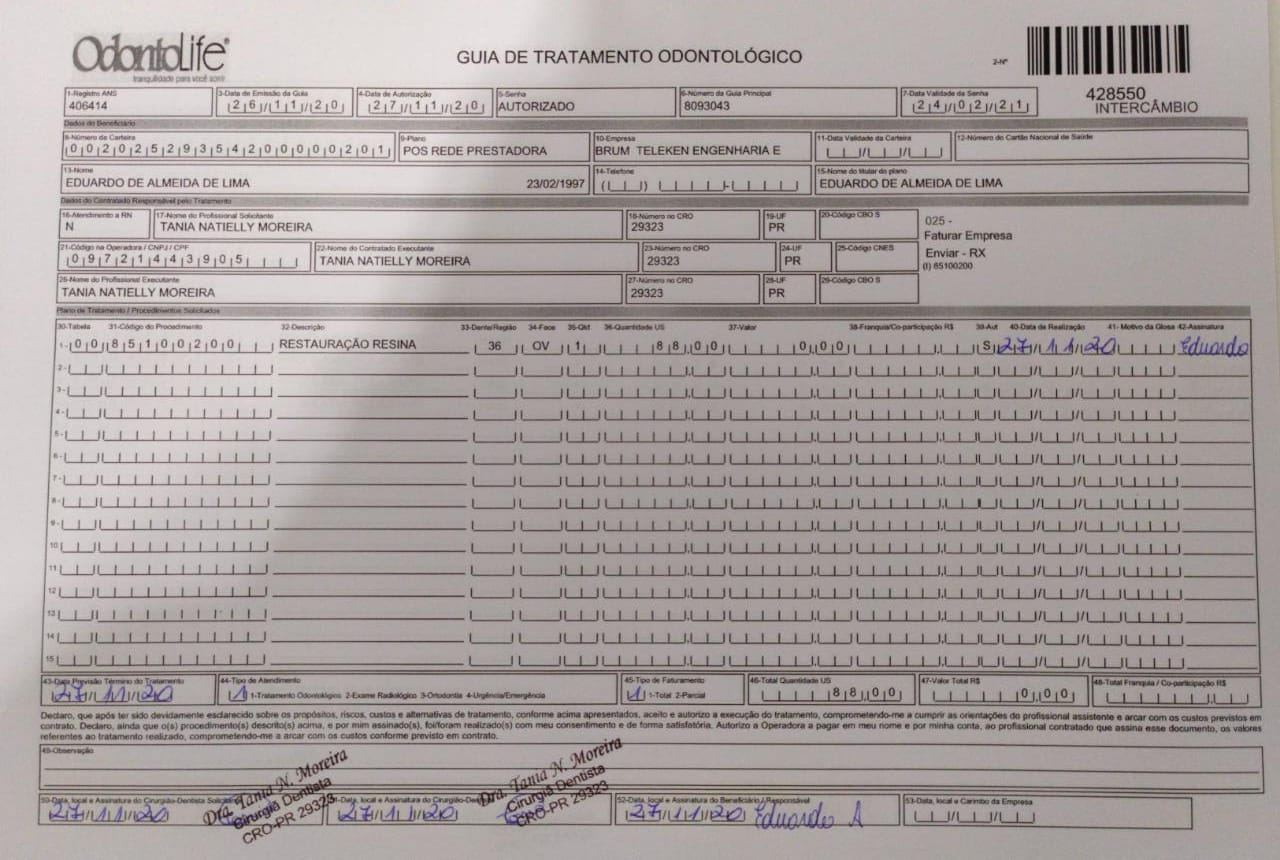 OdontoLife®
tranquilidade para você sorrir
GUIA DE TRATAMENTO ODONTOLÓGICO
2-Nº
428550
INTERCÂMBIO
1-Registro ANS 3-Data de Emissão da Guia 4-Data de Autorização 5-Senha 6-Número da Guia Principal 7-Data Validade da Senha
406414 26/11/20 27/11/20 AUTORIZADO 8093043 24/02/21
Dados do Beneficiário
8-Número da Carteira 9-Plano 10-Empresa 11-Data Validade da Carteira 12-Número do Cartão Nacional de Saúde
00202529354200000201 POS REDE PRESTADORA BRUM TELEKEN ENGENHARIA E
13-Nome 14-Telefone 15-Nome do titular do plano
EDUARDO DE ALMEIDA DE LIMA 23/02/1997 EDUARDO DE ALMEIDA DE LIMA
Dados do Contratado Responsável pelo Tratamento
16-Atendimento a RN 17-Nome do Profissional Solicitante 18-Número no CRO 19-UF 20-Código CBO S
N TANIA NATIELLY MOREIRA 29323 PR
025 -
Faturar Empresa
Enviar - RX
(I) 85100200
21-Código na Operadora / CNPJ / CPF 22-Nome do Contratado Executante 23-Número no CRO 24-UF 25-Código CNES
09721443905 TANIA NATIELLY MOREIRA 29323 PR
26-Nome do Profissional Executante 27-Número no CRO 28-UF 29-Código CBO S
TANIA NATIELLY MOREIRA 29323 PR
Plano de Tratamento / Procedimentos Solicitados
30-Tabela 31-Código do Procedimento 32-Descrição 33-Dente/Região 34-Face 35-Qtd 36-Quantidade US 37-Valor 38-Franquia/Co-participação R$ 39-Aut 40-Data de Realização 41- Motivo da Glosa 42-Assinatura
1- 00 85100200 RESTAURAÇÃO RESINA 36 OV 1 88,00 0,00 S 27/11/20 Eduardo
2-
3-
4-
5-
6-
7-
8-
9-
10
11
12
13
14
15
43-Data Previsão Término do Tratamento 44-Tipo de Atendimento 45-Tipo de Faturamento 46-Total Quantidade US 47-Valor Total R$ 48-Total Franquia / Co-participação R$
27/11/20 1 1-Tratamento Odontológico 2-Exame Radiológico 3-Ortodontia 4-Urgência/Emergência 1 1-Total 2-Parcial 88,00 0,00
Declaro, que após ter sido devidamente esclarecido sobre os propósitos, riscos, custos e alternativas de tratamento, conforme acima apresentados, aceito e autorizo a execução do tratamento, comprometendo-me a cumprir as orientações do profissional assistente e arcar com os custos previstos em
contrato. Declaro, ainda que o(s) procedimento(s) descrito(s) acima, e por mim assinado(s), foi/foram realizado(s) com meu consentimento e de forma satisfatória. Autorizo a Operadora a pagar em meu nome e por minha conta, ao profissional contratado que assina esse documento, os valores
referentes ao tratamento realizado, comprometendo-me a arcar com os custos conforme previsto em contrato.
49-Observação
Dra. Tania N. Moreira
Cirurgiã Dentista
CRO-PR 29323
Dra. Tania N. Moreira
Cirurgiã Dentista
CRO-PR 29323
50-Data, local e Assinatura do Cirurgião-Dentista 51-Data, local e Assinatura do Cirurgião-Dentista 52-Data, local e Assinatura do Beneficiário / Responsável 53-Data, local e Carimbo da Empresa
27/11/20 27/11/20 27/11/20 Eduardo A